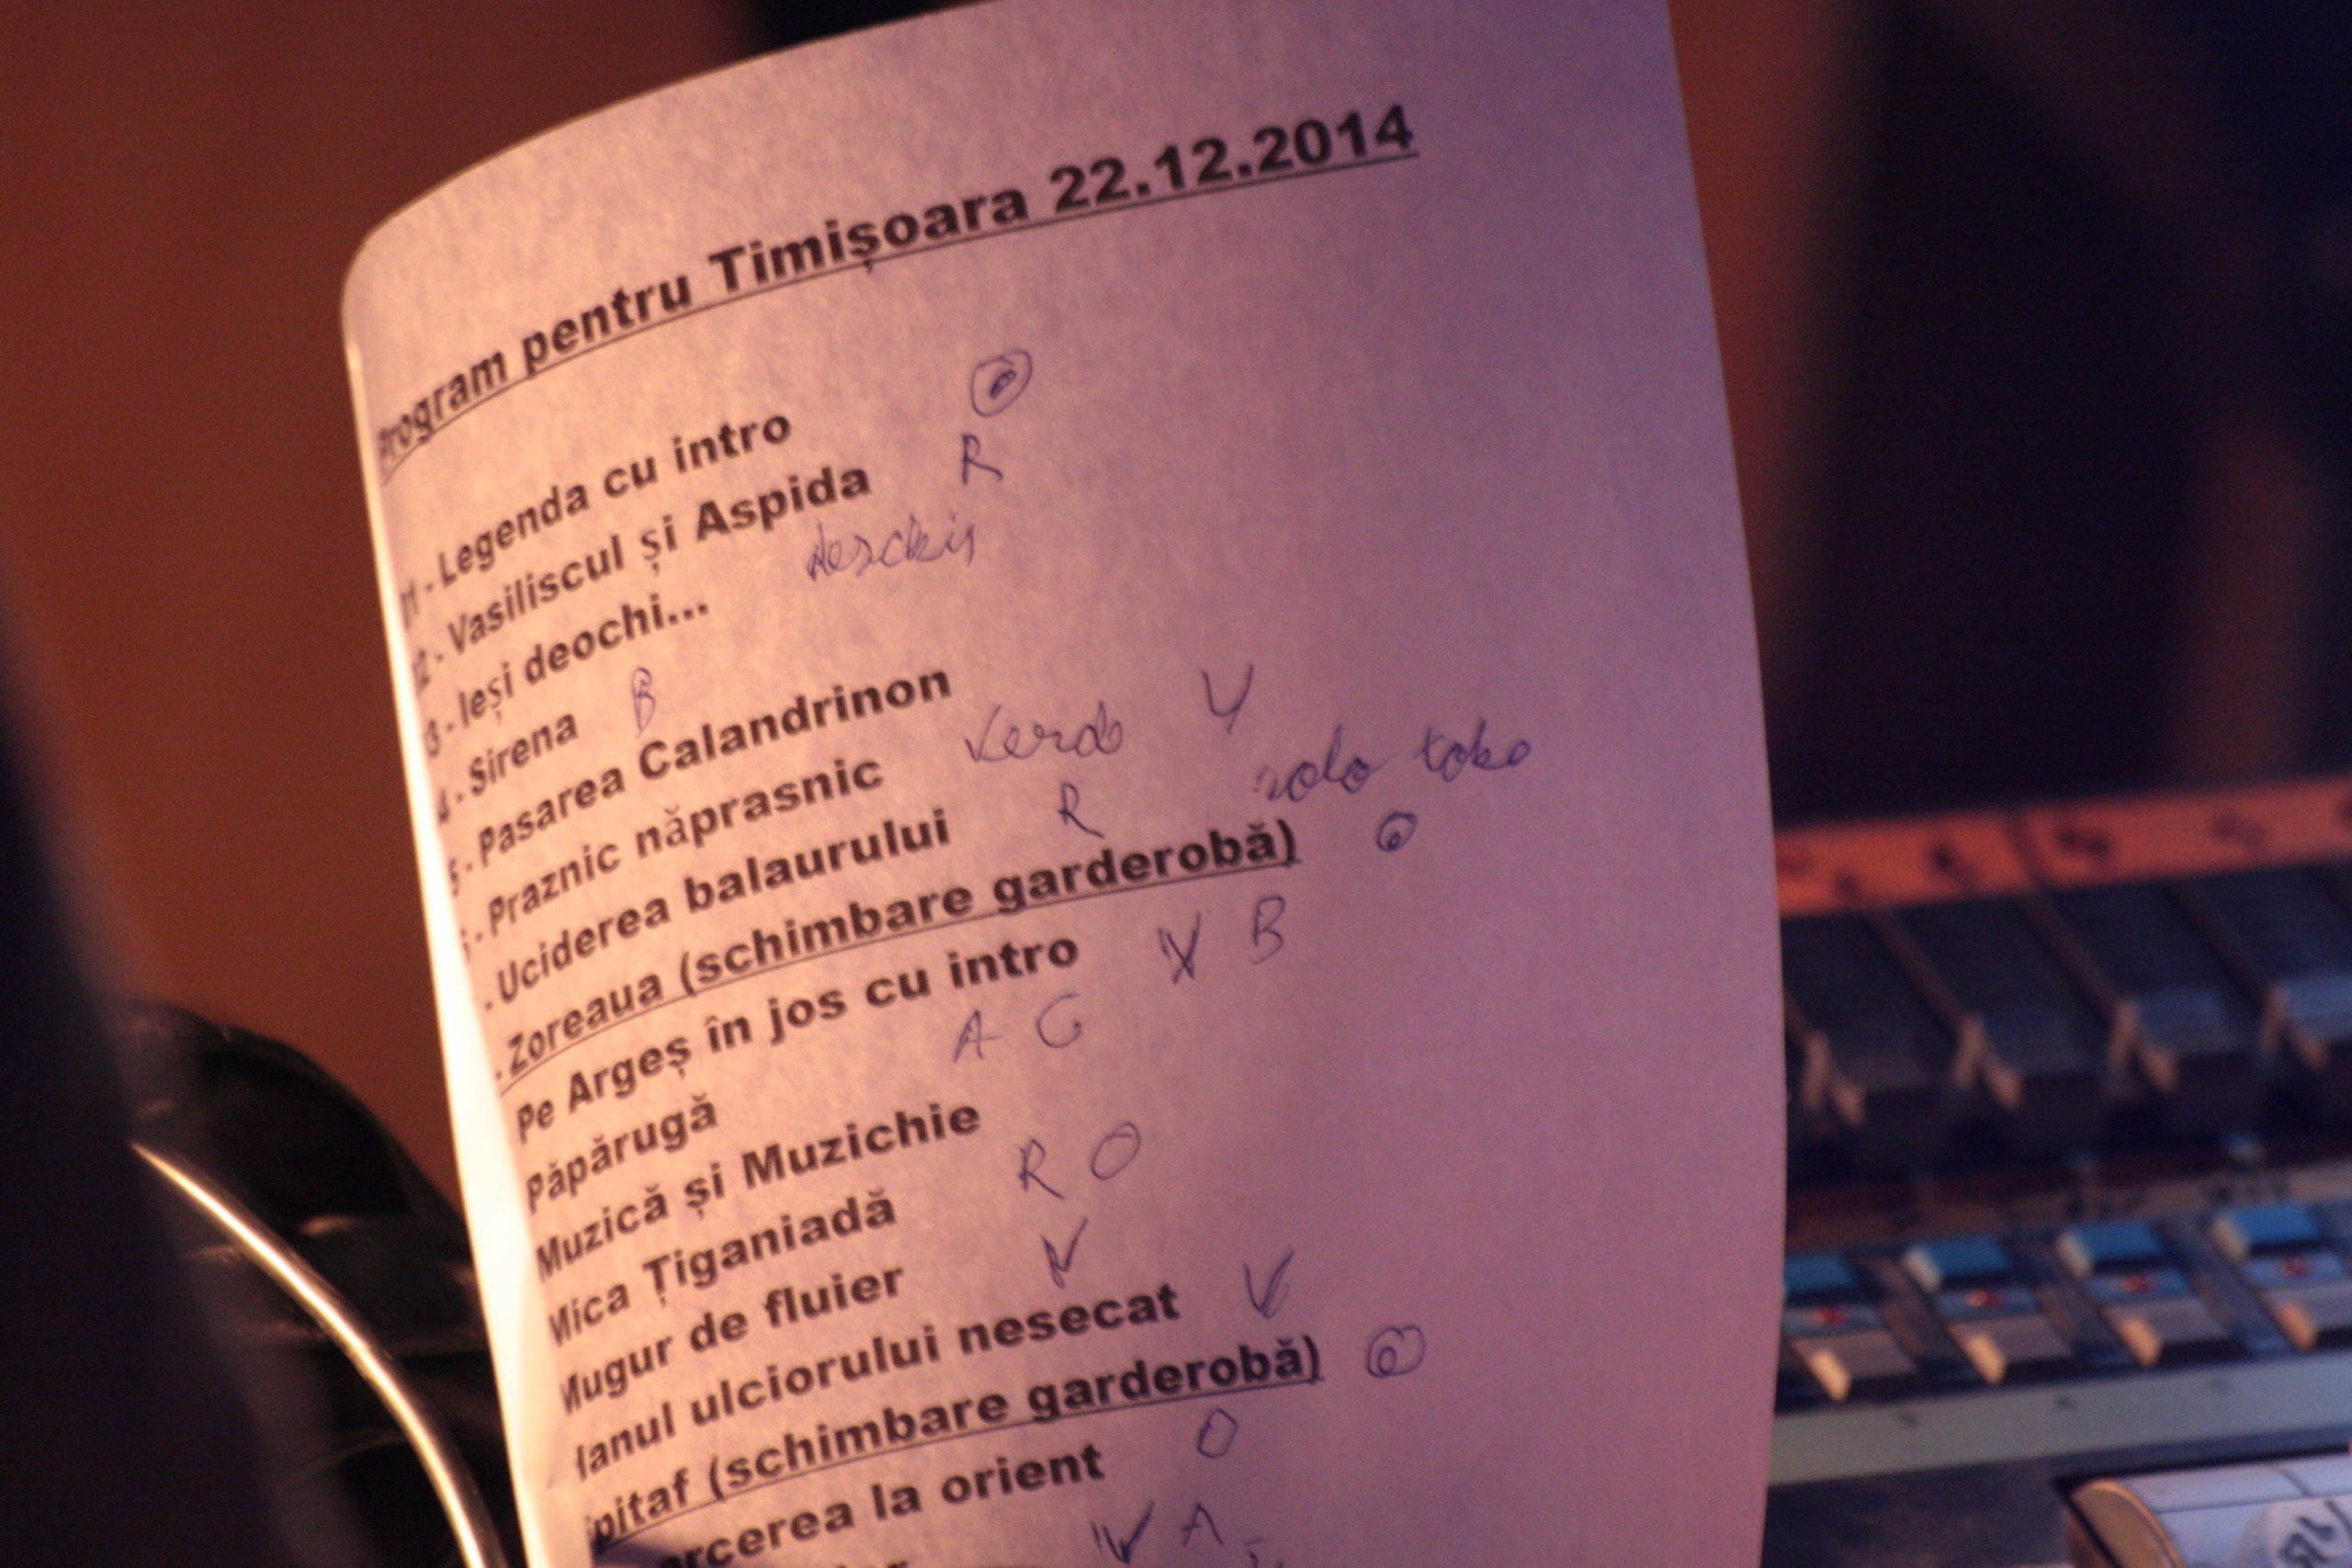 Program pentru Timișoara 22.12.2014
01 - Legenda cu intro
2 - Vasiliscul și Aspida R
3 - Ieși deochi... deschis
4 - Sirena B
5 - Pasarea Calandrinon
- Praznic năprasnic verde V
. Uciderea balaurului R solo tobe
. Zoreaua (schimbare garderobă)
Pe Argeș în jos cu intro V B
Păpărugă A G
Muzică și Muzichie
Mica Țiganiadă R O
Mugur de fluier V
anul ulciorului nesecat V
pitaf (schimbare garderobă)
rcerea la orient O
V A